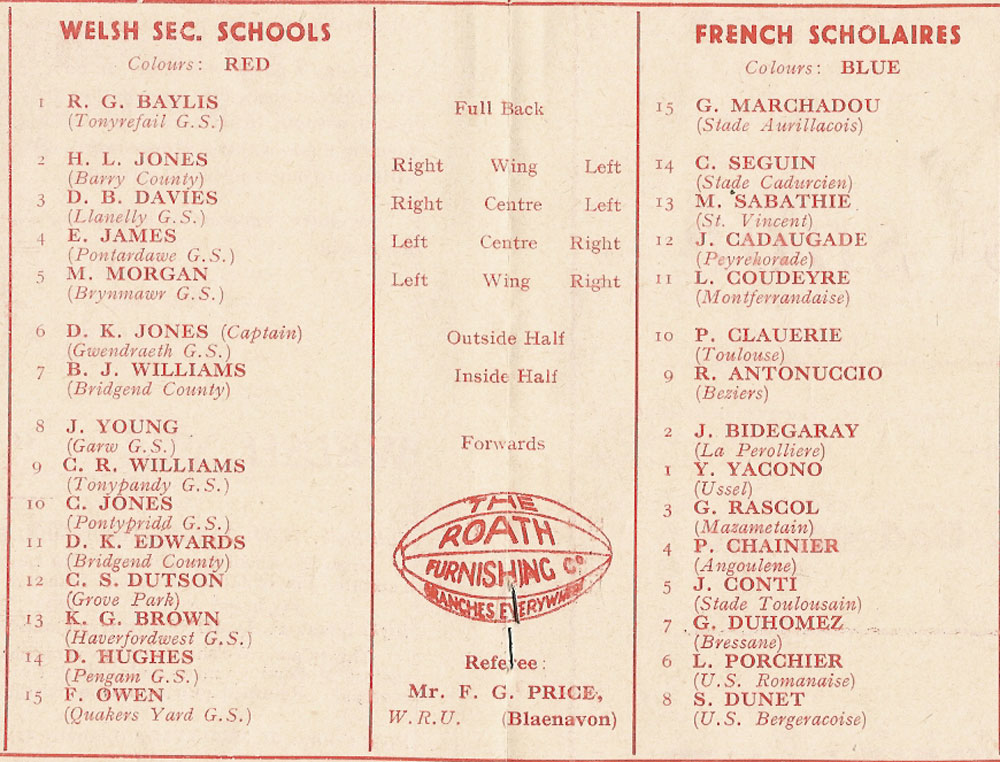 WELSH SEC. SCHOOLS
Colours: RED
1 R. G. BAYLIS
(Tonyrefail G.S.)
2 H. L. JONES
(Barry County)
3 D. B. DAVIES
(Llanelly G.S.)
4 E. JAMES
(Pontardawe G.S.)
5 M. MORGAN
(Brynmawr G.S.)
6 D. K. JONES (Captain)
(Gwendraeth G.S.)
7 B. J. WILLIAMS
(Bridgend County)
8 J. YOUNG
(Garw G.S.)
9 C. R. WILLIAMS
(Tonypandy G.S.)
10 C. JONES
(Pontypridd G.S.)
11 D. K. EDWARDS
(Bridgend County)
12 C. S. DUTSON
(Grove Park)
13 K. G. BROWN
(Haverfordwest G.S.)
14 D. HUGHES
(Pengam G.S.)
15 F. OWEN
(Quakers Yard G.S.)
Full Back
Right Wing Left
Right Centre Left
Left Centre Right
Left Wing Right
Outside Half
Inside Half
Forwards
THE
ROATH
FURNISHING Co
BRANCHES EVERYWHERE
Referee:
Mr. F. G. PRICE,
W.R.U. (Blaenavon)
FRENCH SCHOLAIRES
Colours: BLUE
15 G. MARCHADOU
(Stade Aurillacois)
14 C. SEGUIN
(Stade Cadurcien)
13 M. SABATHIE
(St. Vincent)
12 J. CADAUGADE
(Peyrehorade)
11 L. COUDEYRE
(Montferrandaise)
10 P. CLAUERIE
(Toulouse)
9 R. ANTONUCCIO
(Beziers)
2 J. BIDEGARAY
(La Perolliere)
1 Y. YACONO
(Ussel)
3 G. RASCOL
(Mazametain)
4 P. CHAINIER
(Angoulene)
5 J. CONTI
(Stade Toulousain)
7 G. DUHOMEZ
(Bressane)
6 L. PORCHIER
(U.S. Romanaise)
8 S. DUNET
(U.S. Bergeracoise)